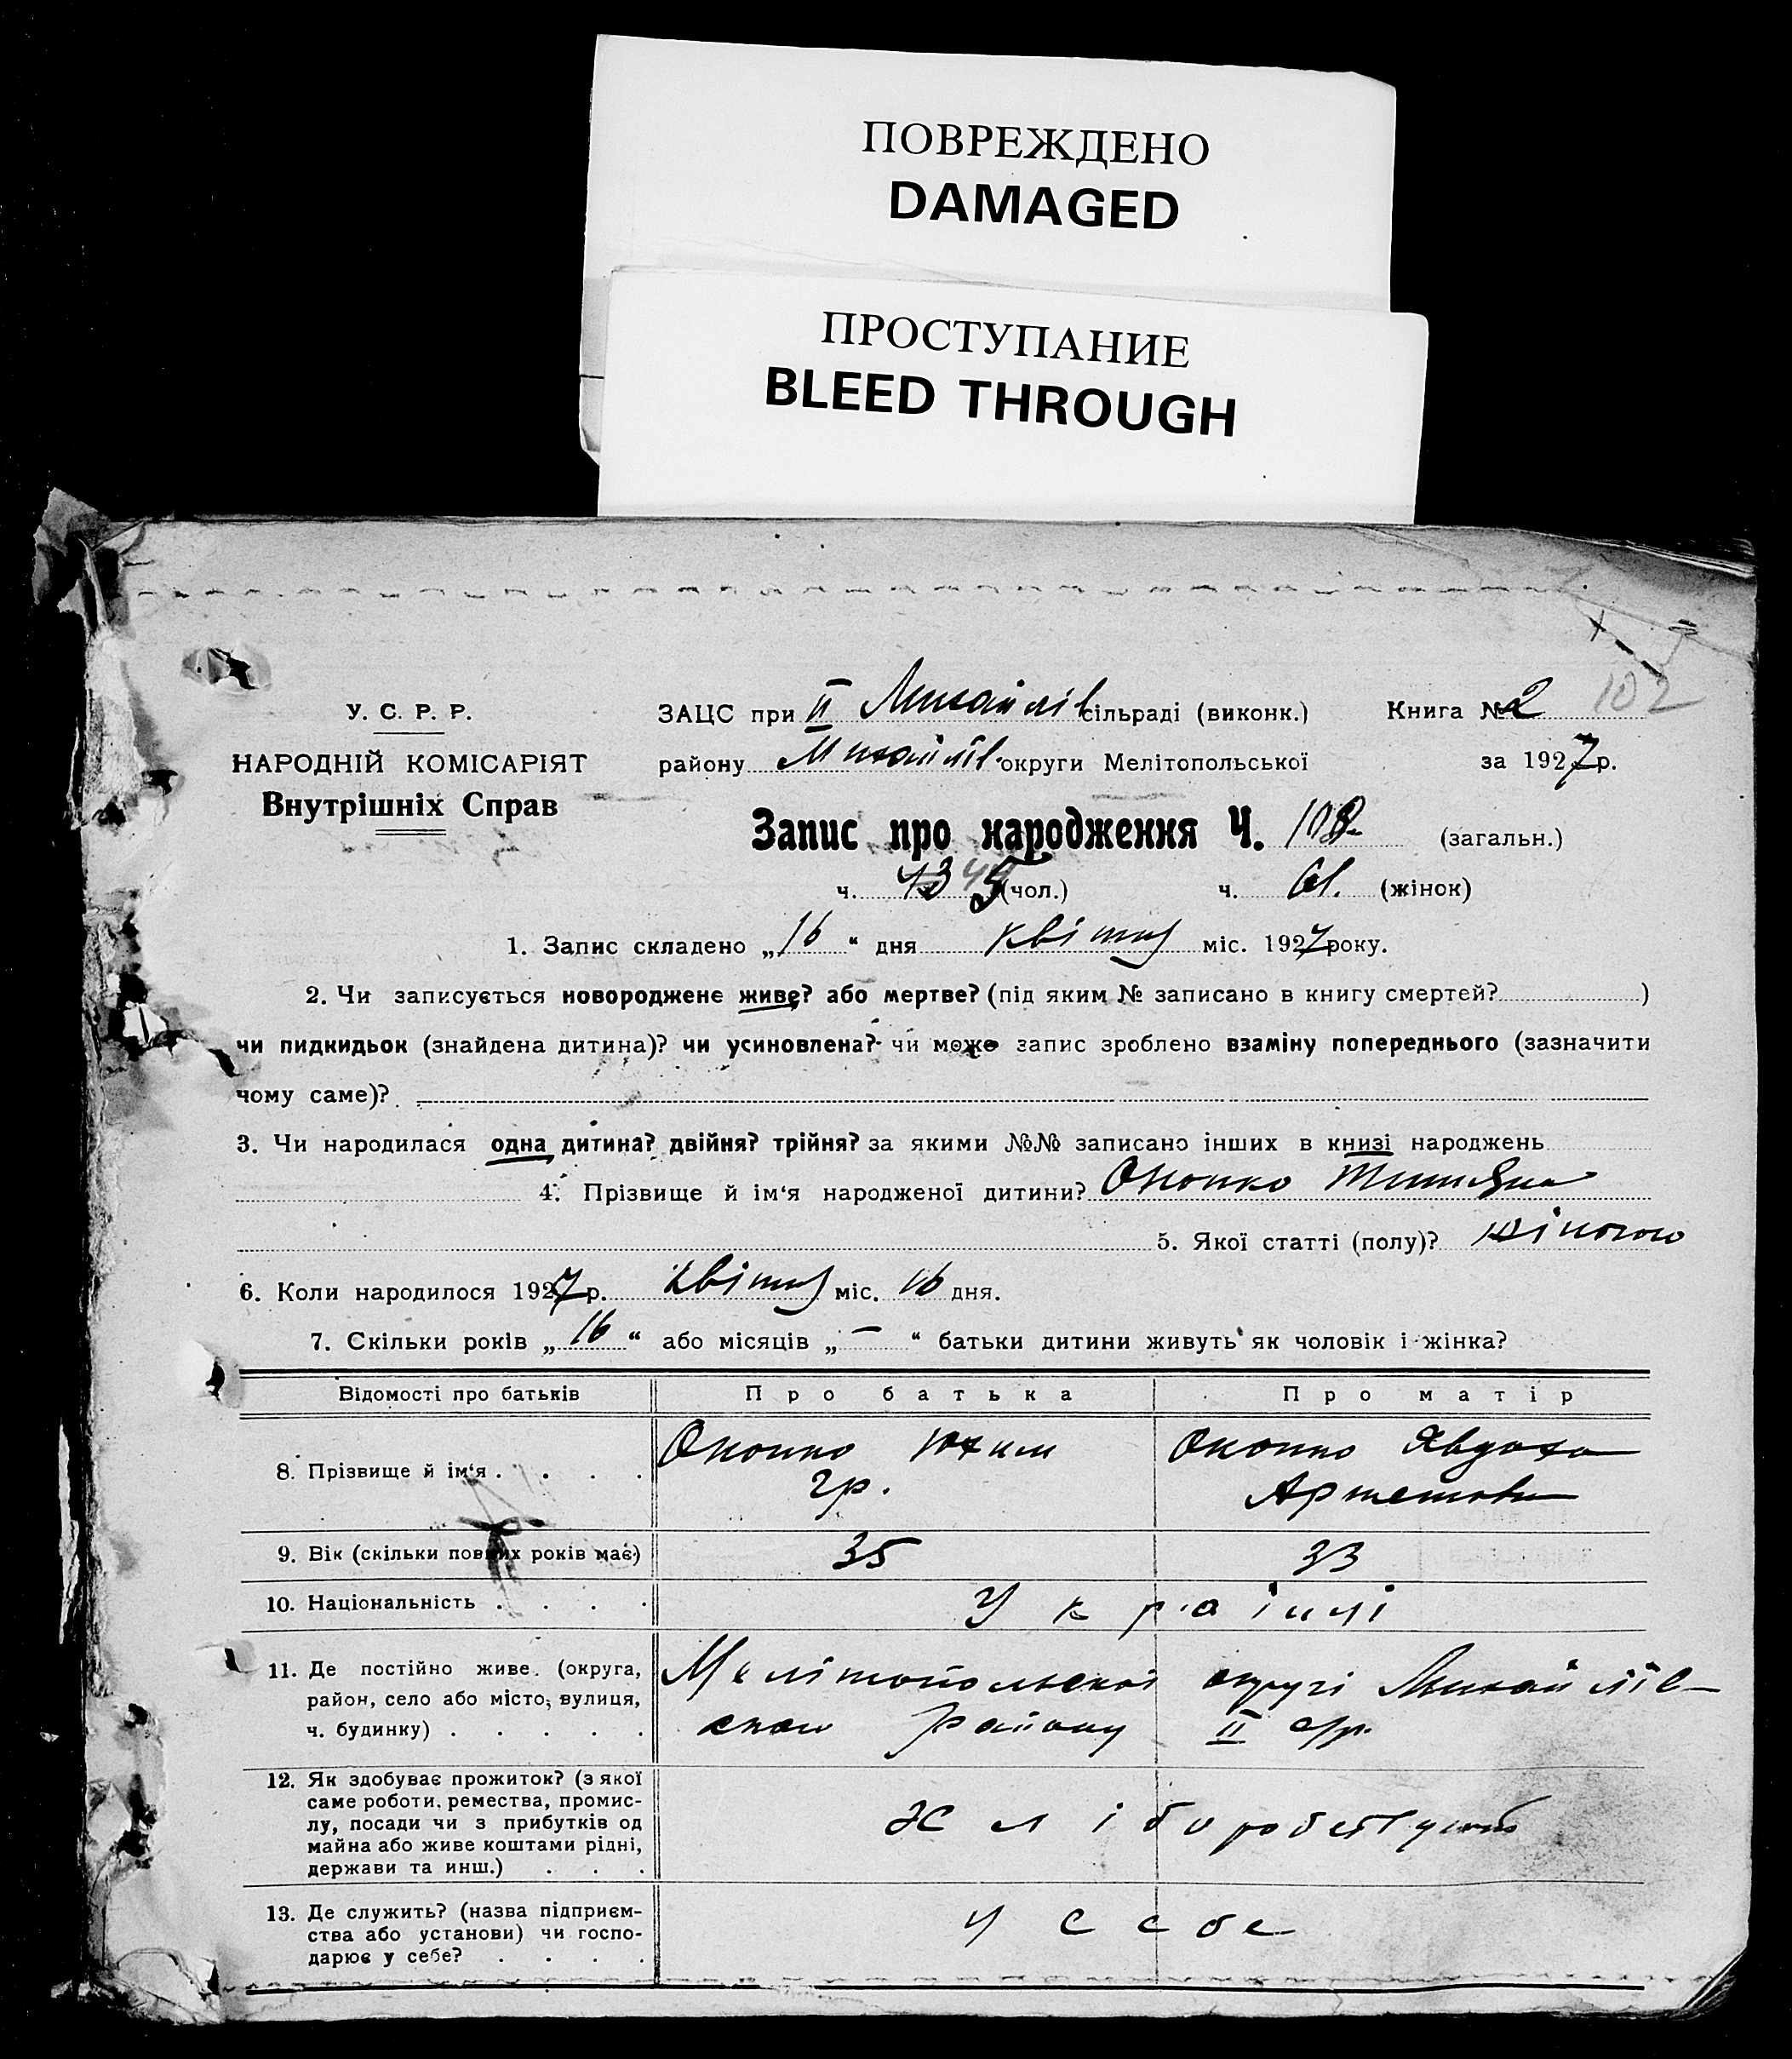 ПОВРЕЖДЕНО
DAMAGED
ПРОСТУПАНИЕ
BLEED THROUGH
102
У. С. Р. Р.
НАРОДНІЙ КОМІСАРІЯТ
Внутрішніх Справ
ЗАЦС при II Михайлів сільраді (виконк.) Книга № 2
району Михайлів. округи Мелітопольської за 1927 р.
Запис про народження Ч. 108 (загальн.)
ч. (чол.) ч. 61. (жінок)
1. Запис складено „16“ дня квітня міс. 1927 року.
2. Чи записується новороджене живе? або мертве? (під яким № записано в книгу смертей? )
чи пидкидьок (знайдена дитина)? чи усиновлена? чи може запис зроблено взаміну попереднього (зазначити
чому саме)?
3. Чи народилася одна дитина? двійня? трійня? за якими №№ записано інших в книзі народжень
4. Прізвище й ім‘я народженої дитини? Оконко
5. Якої статті (полу)? жіночою
6. Коли народилося 1927 р. квітня міс. 16 дня.
7. Скільки років „16“ або місяців „—“ батьки дитини живуть як чоловік і жінка?
Відомості про батьків Про батька Про матір
8. Прізвище й ім‘я . . . . Оконко Юхим гр. Оконко Явдоха Артемовна
9. Вік (скільки повних років має) 35 33
10. Національність . . . . Українці
11. Де постійно живе. (округа, Мелітопольської округі Михайлів-
район, село або місто, вулиця,
ч. будинку) . . . . . ског району II с/р.
12. Як здобуває прожиток? (з якої
саме роботи, ремества, промис-
лу, посади чи з прибутків од
майна або живе коштами рідні,
держави та инш.) . . . Хлібороб
13. Де служить? (назва підприєм-
ства або установи) чи госпо-
дарює у себе? . . . . у себе